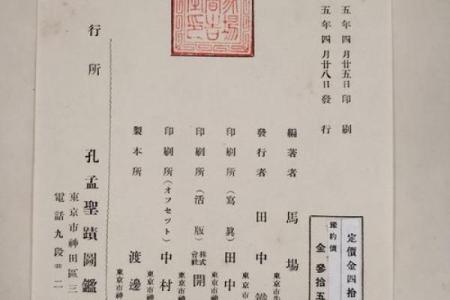 五年四月廿五日印刷
五年四月廿八日發行
定價金四拾
豫約價
金參拾五
編著者 馬場
東京市牛
發行者 田中
東京市神
印刷所(寫眞) 田中
東京市
印刷所(活版) 株式會社 開
東京市
印刷所(オフセツト) 中村
東京市神
製本所 渡邊
東京市神
行所 孔孟聖蹟圖鑑
東京市神田區三
電話九段